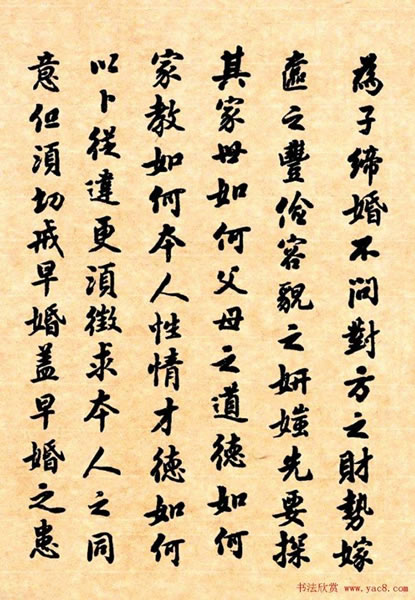 為子締婚不問對方之財勢嫁
奩之豐儉容貌之妍媸先要探
其家世如何父母之道德如何
家教如何本人性情才德如何
以卜從違更須徵求本人之同
意但須切戒早婚蓋早婚之患
书法欣赏 www.yac8.com